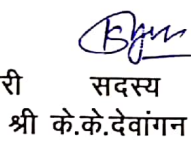 री सदस्य
श्री के.के.देवांगन